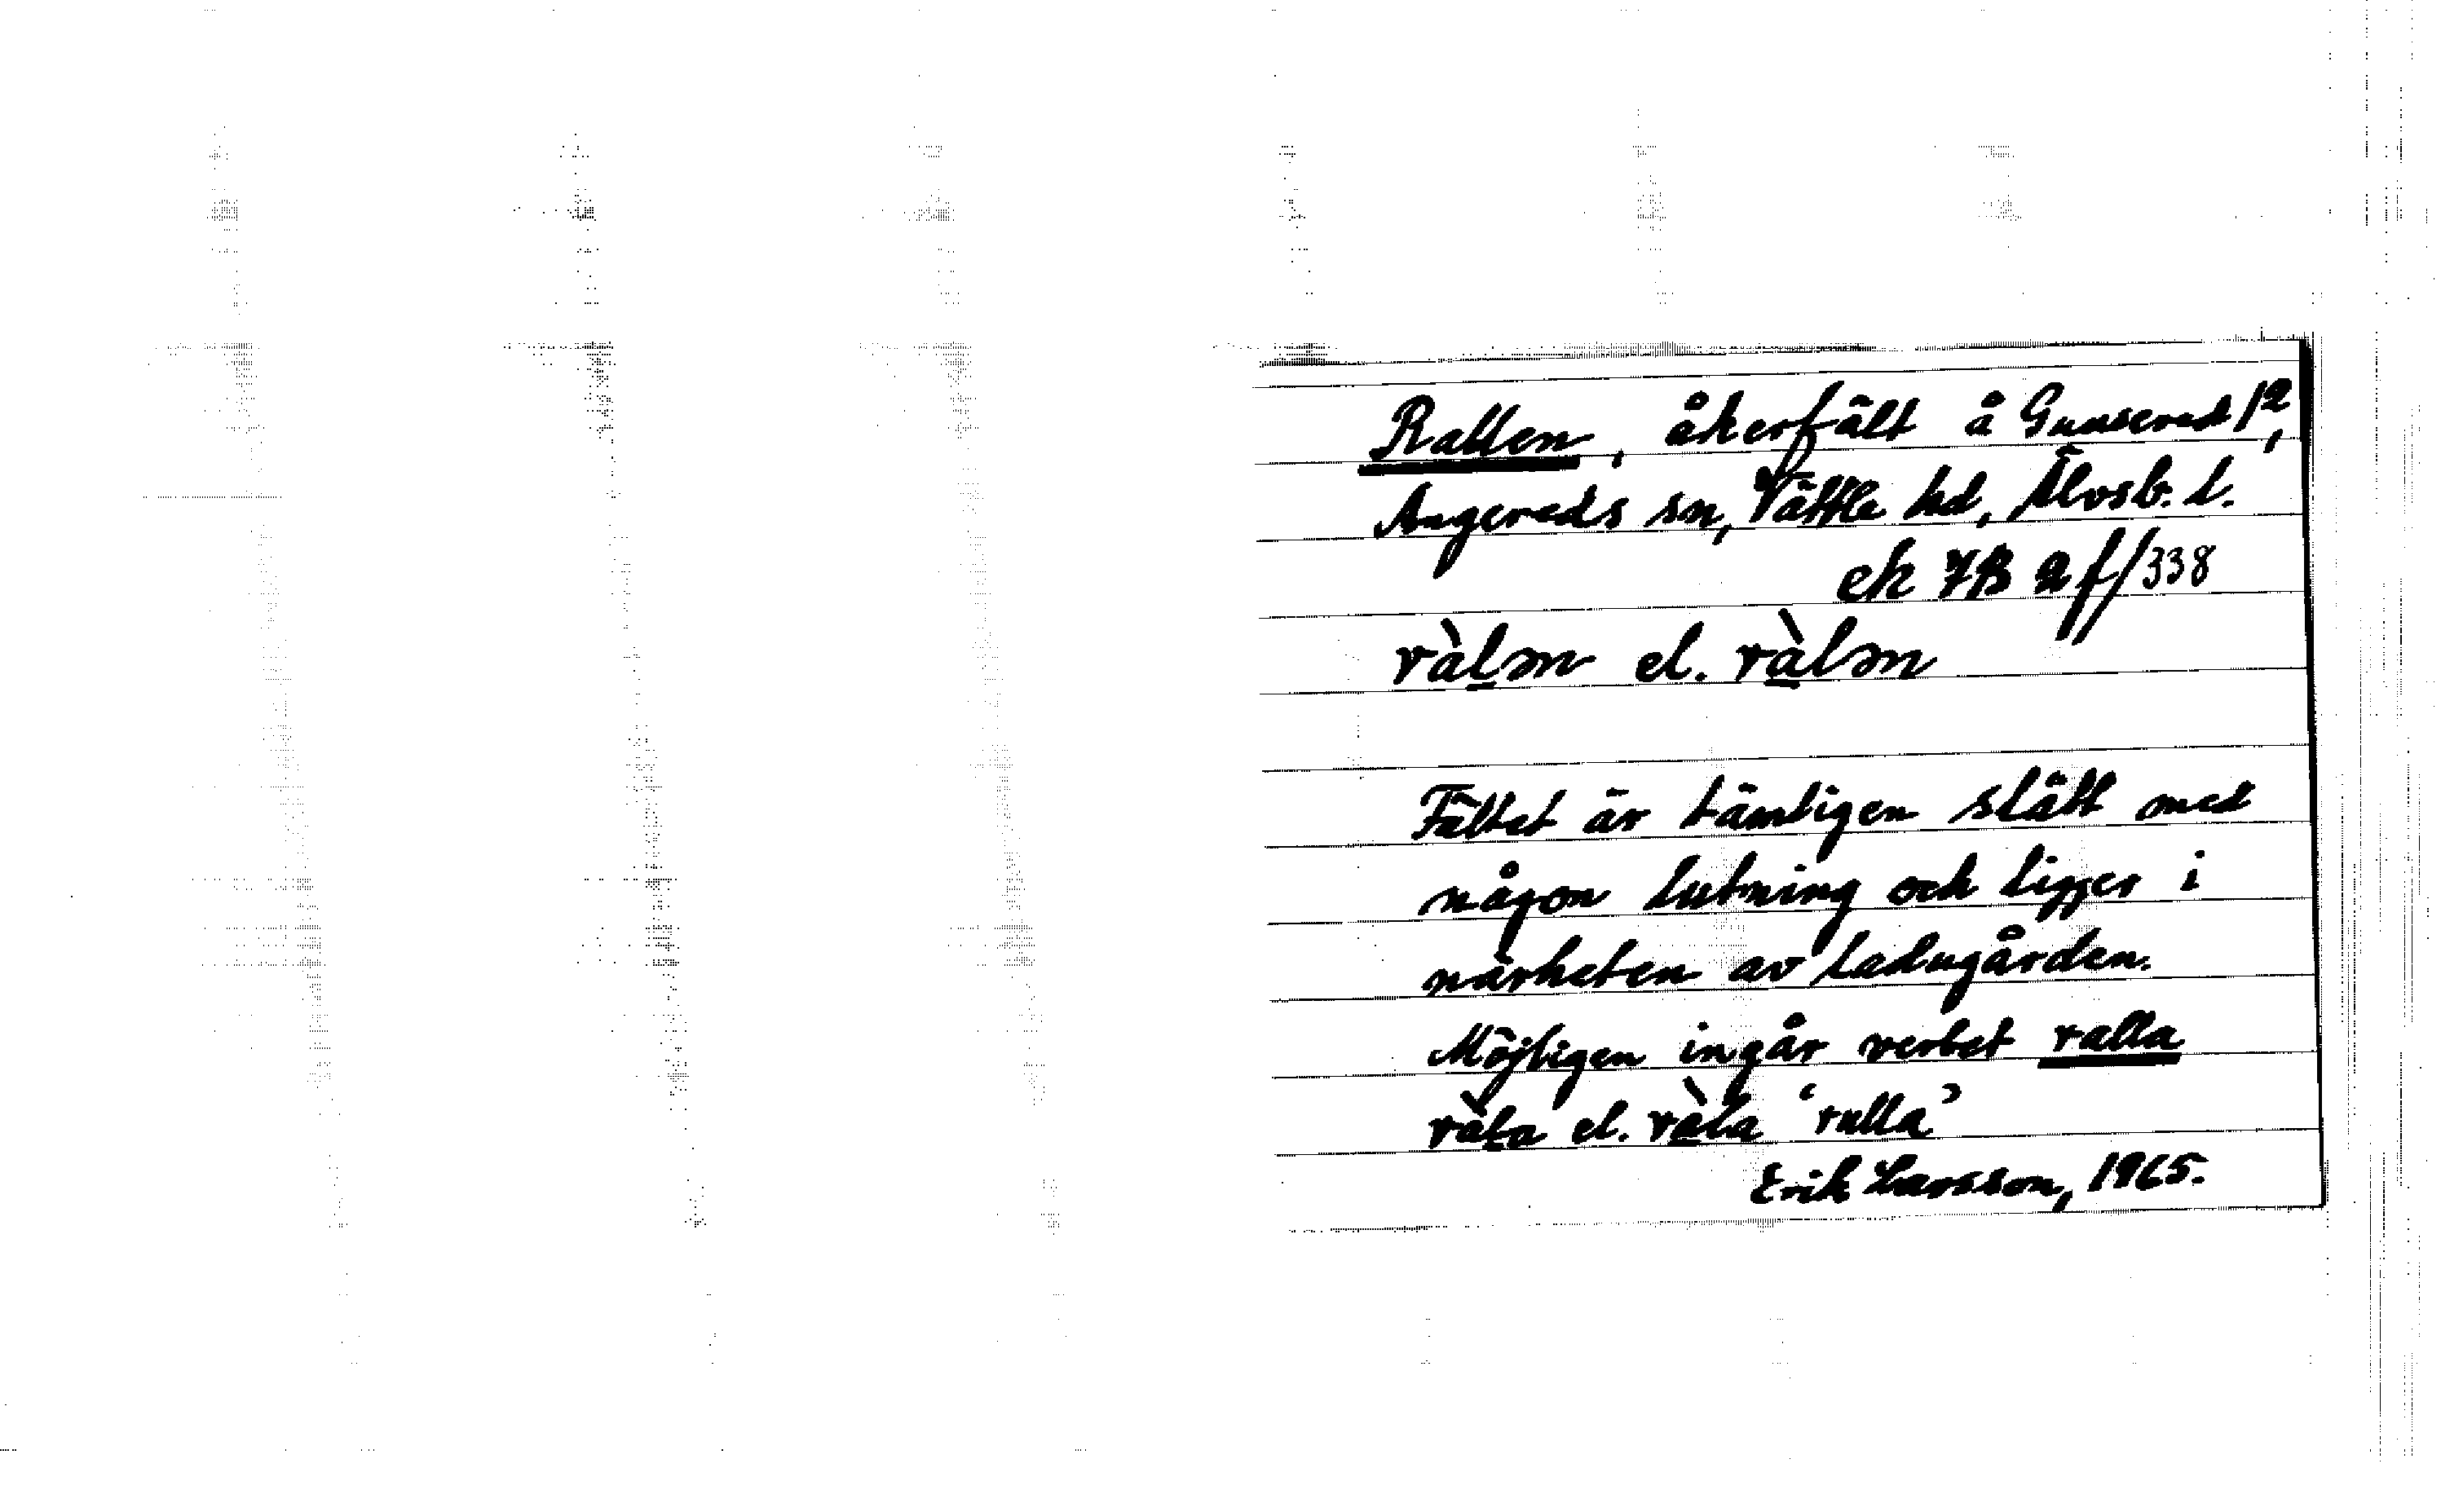 Rallen, åkerfält å Gunnered 1²,
Angereds sn, Vättle hd, Älvsb. l.
ek 7B 2f/338
ràl̲ən el. rà̲lən
Fältet är tämligen slätt med
någon lutning och ligger i
närheten av ladugården.
Möjligen ingår verbet ralla
ràl̲a el. rà̲la ‘rulla’
Erik Larsson, 1965.